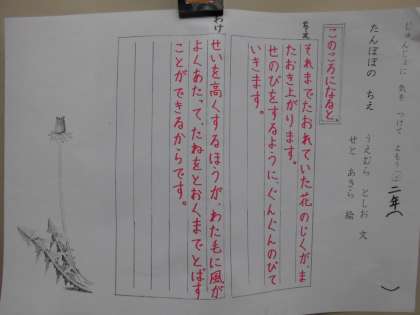 じゅんじょに 気を つけて よもう
二年(　　　)
たんぽぽの ちえ
うえむら としお 文
せと あきら 絵
このころになると、
ちえ
それまでたおれていた花のじくが、ま
たおき上がります。
せのびをするように、ぐんぐんのびて
いきます。
わけ
せいを高くするほうが、わた毛に風が
よくあたって、たねをとおくまでとばす
ことができるからです。